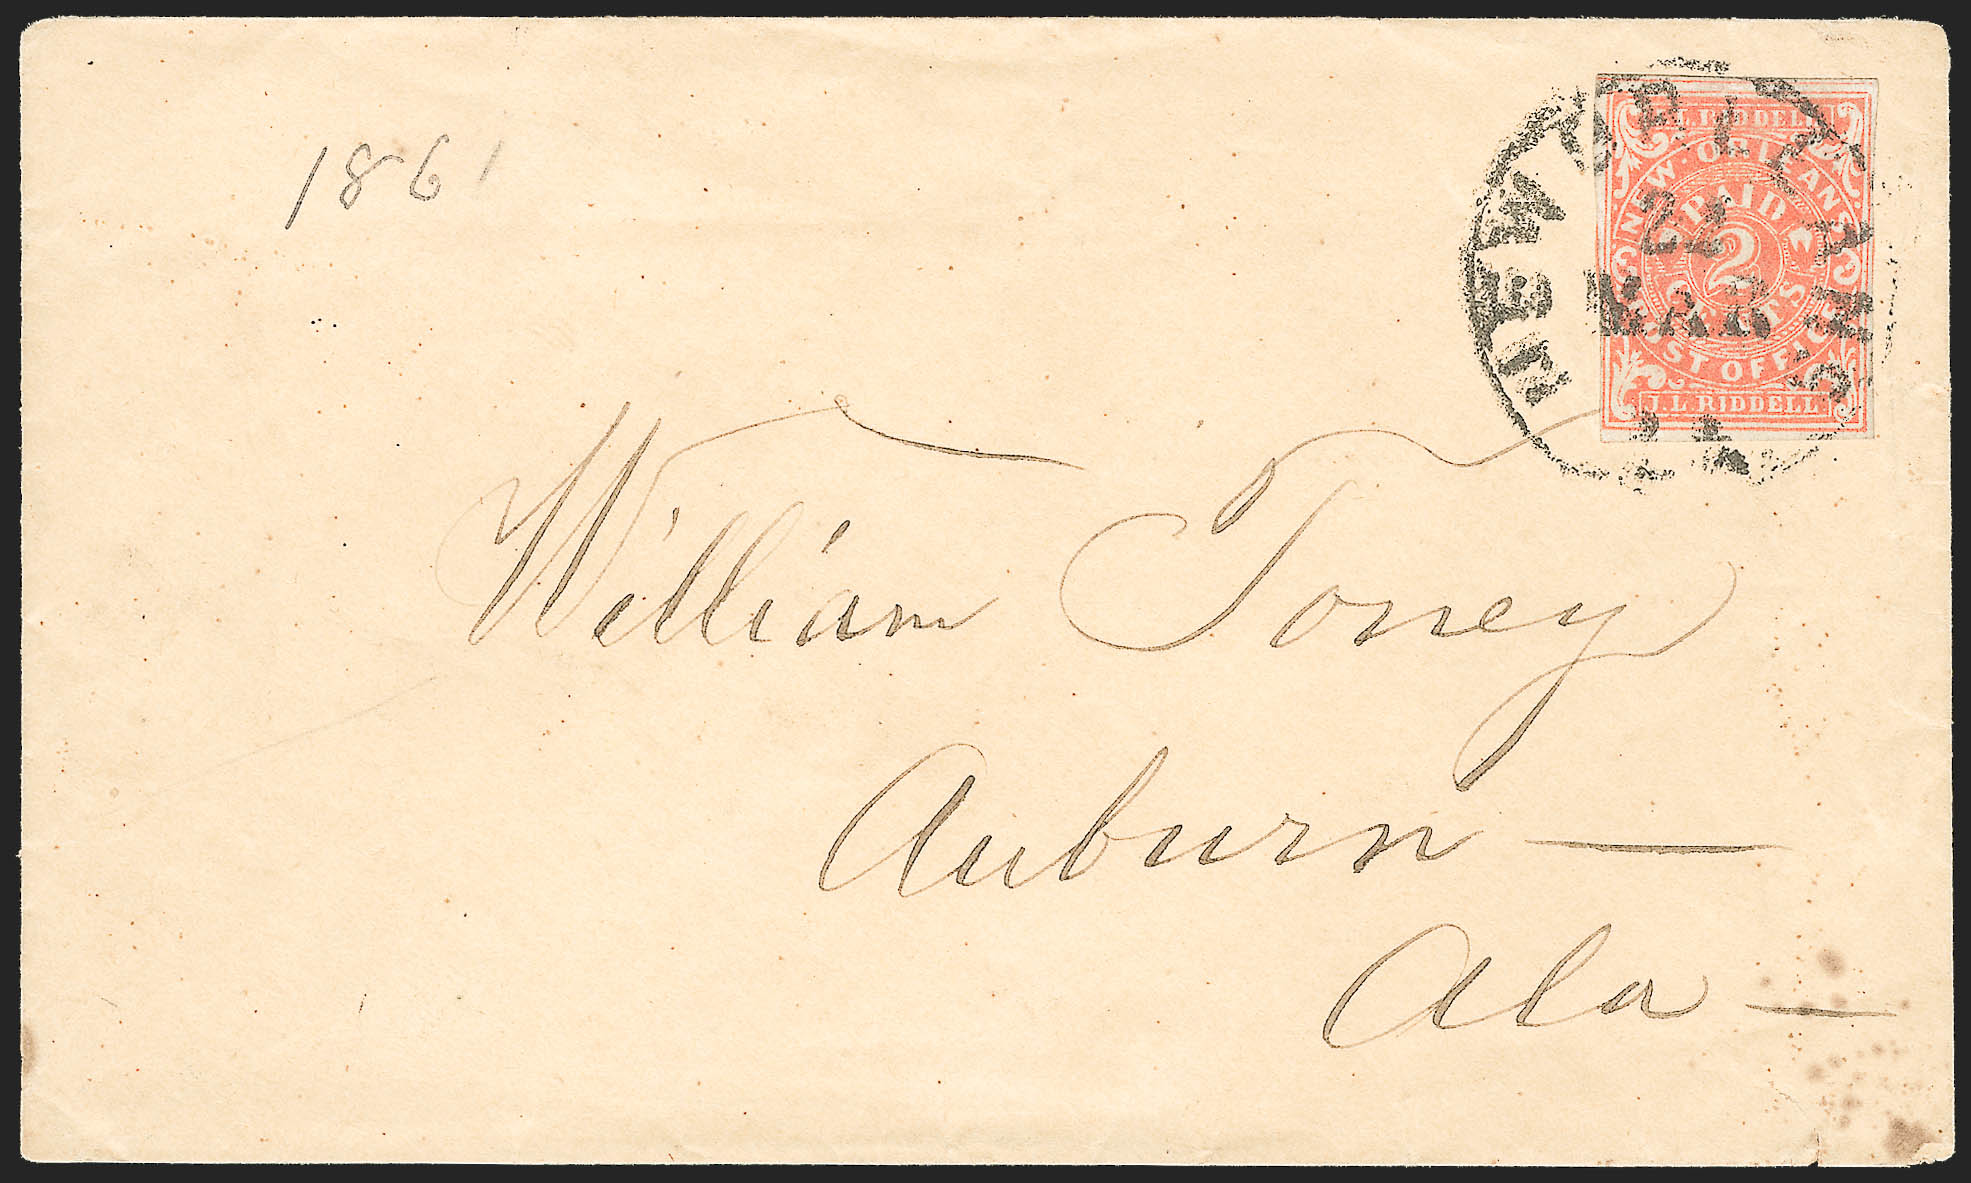 1861
NEW ORLEANS
22
MAR
J.L.RIDDELL
NEW·ORLEANS
PAID
2
CENTS
POST OFFICE
J.L.RIDDELL
William Toney
Auburn —
Ala —